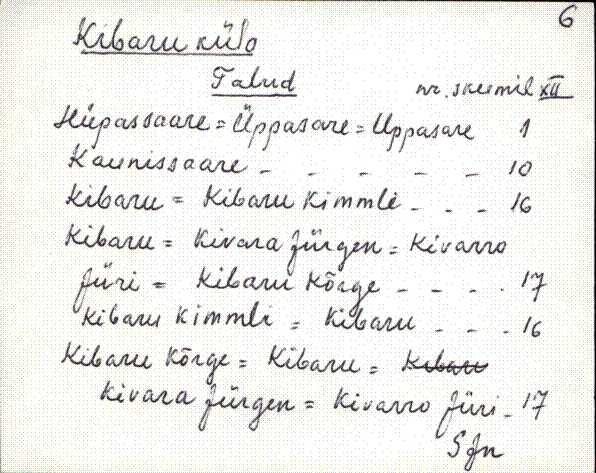 6
Kibaru küla
Talud
nr. skeemil XII
Hüpassaare = Üppasare = Uppasare 1
Kaunissaare - - - - - 10
Kibaru = Kibaru Kimmli - - - 16
Kibaru = Kivara Jürgen = Kivarro
Jüri = Kibaru Kõrge - - - - 17
Kibaru Kimmli = Kibaru - - - 16
Kibaru Kõrge = Kibaru = Kibaru
Kivara Jürgen = Kivarro Jüri - 17